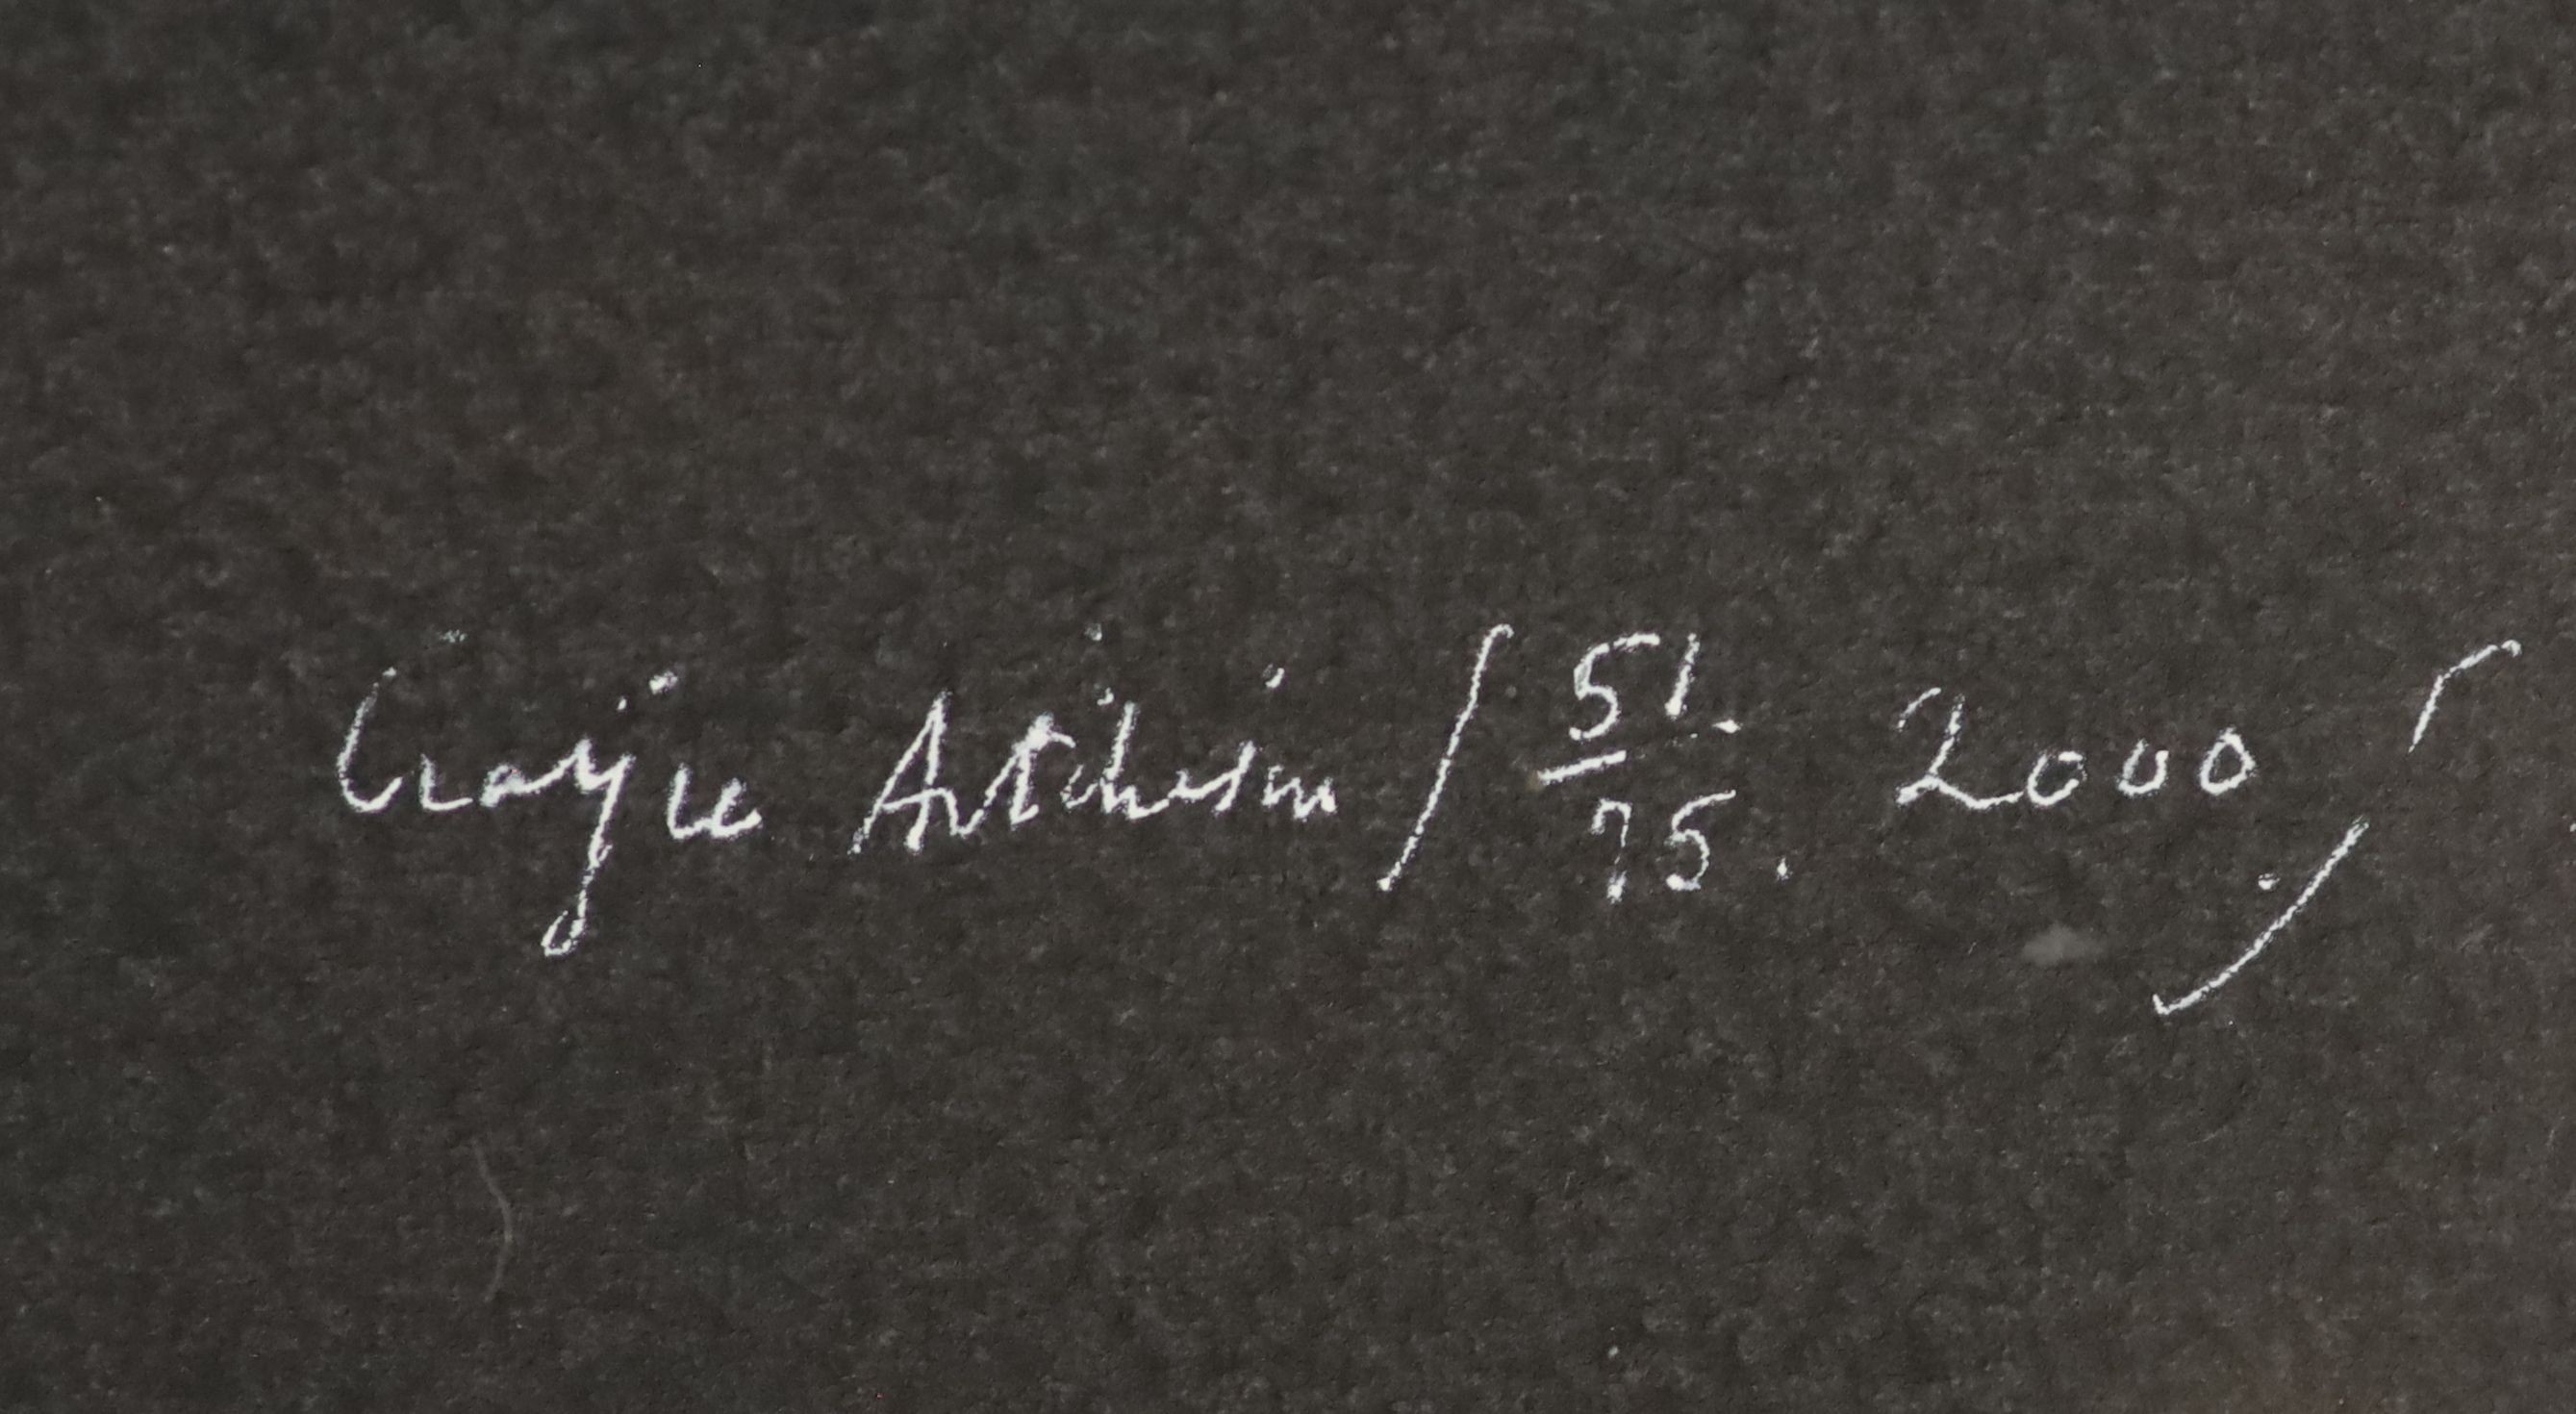 Craigie Aitchison / 51/75. 2000 /